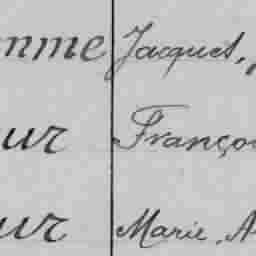 mme Jacques,
ur Franço
ur Marie, A